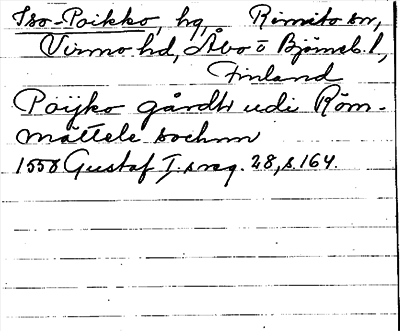 Iso-Poikko, hg, Rimito sn,
Virmo hd, Åbo o Björneb. l,
Finland
Pöijko gårdh udi Röm-
mättele sochnn
1558 Gustaf I:s reg. 28, s. 164.